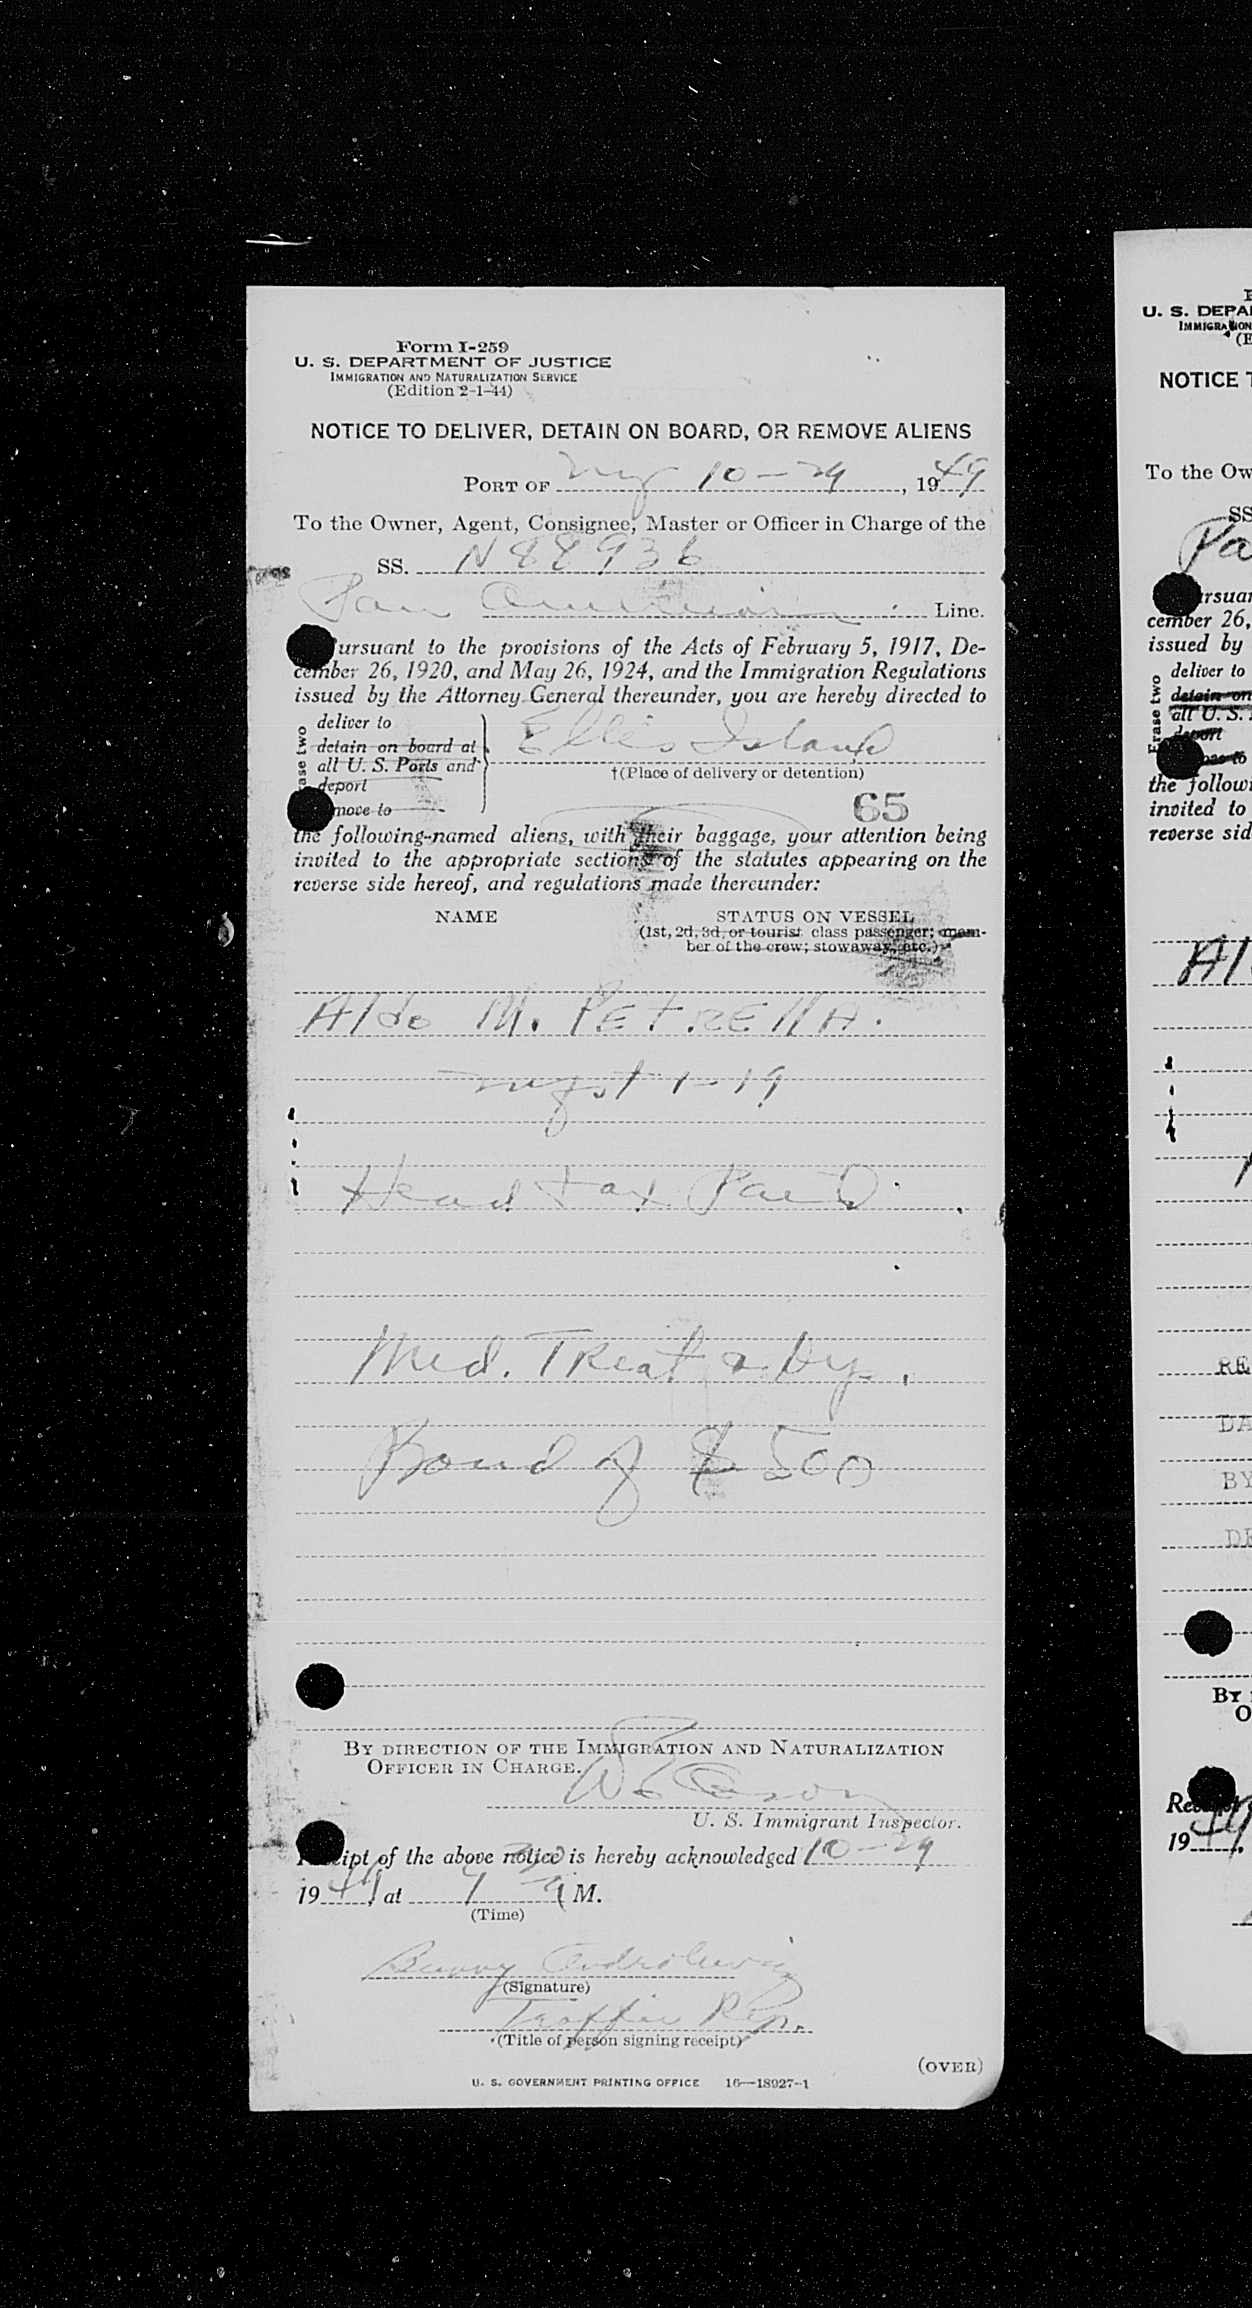 Form I-259
U. S. DEPARTMENT OF JUSTICE
IMMIGRATION AND NATURALIZATION SERVICE
(Edition 2-1-44)
NOTICE TO DELIVER, DETAIN ON BOARD, OR REMOVE ALIENS
PORT OF 10-29, 1949
To the Owner, Agent, Consignee, Master or Officer in Charge of the
SS. N 88936
Pan American Line.
ursuant to the provisions of the Acts of February 5, 1917, De-
cember 26, 1920, and May 26, 1924, and the Immigration Regulations
issued by the Attorney General thereunder, you are hereby directed to
ase two
deliver to
detain on board at
all U. S. Ports and
deport
move to
Ellis Island
†(Place of delivery or detention)
65
the following-named aliens, with their baggage, your attention being
invited to the appropriate sections of the statutes appearing on the
reverse side hereof, and regulations made thereunder:
NAME STATUS ON VESSEL
(1st, 2d, 3d, or tourist class passenger; mem-
ber of the crew; stowaway, etc.)
Aldo M. PETRELLA.
1-19
Head tax Paid.
Med. Treat &
Bond of $500
BY DIRECTION OF THE IMMIGRATION AND NATURALIZATION
OFFICER IN CHARGE.
U. S. Immigrant Inspector.
ipt of the above notice is hereby acknowledged 10-29
1949 at M.
(Time)
(Signature)
Traffic Rep.
(Title of person signing receipt)
(OVER)
U. S. GOVERNMENT PRINTING OFFICE 16—18927-1
U. S. DEPA
IMMIGRATION
(E
NOTICE T
To the Ow
SS
Pa
rsuan
cember 26,
issued by
Erase two
deliver to
detain on
all U. S.
deport
the followi
invited to
reverse sid
Al
RE
DA
BY
BY
O
19